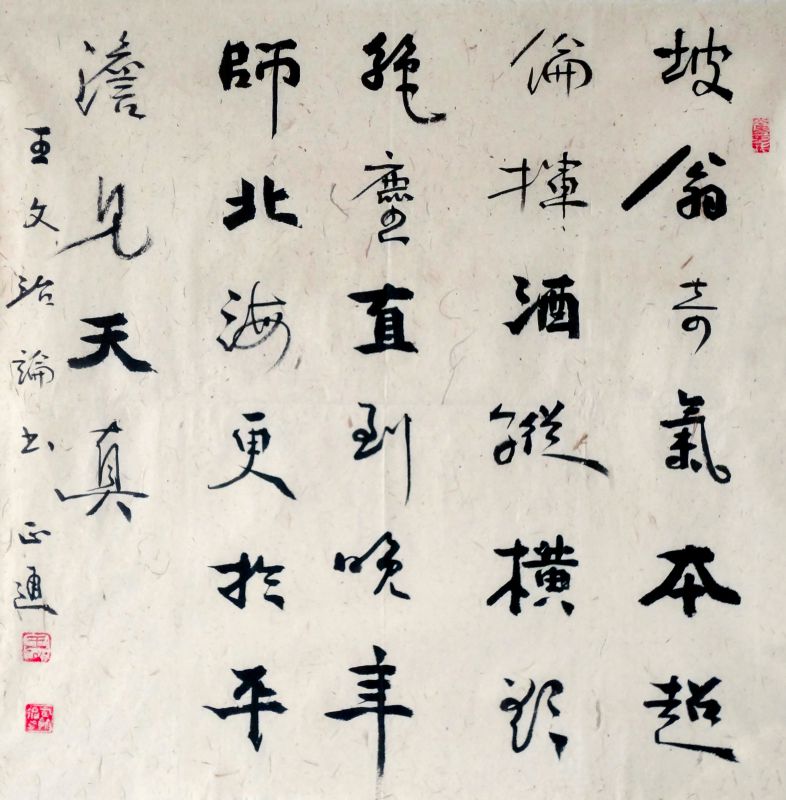 坡翁奇氣本超
倫揮酒縱橫欲
絕塵直到晚年
師北海更於平
澹見天真
王文治論書 正通